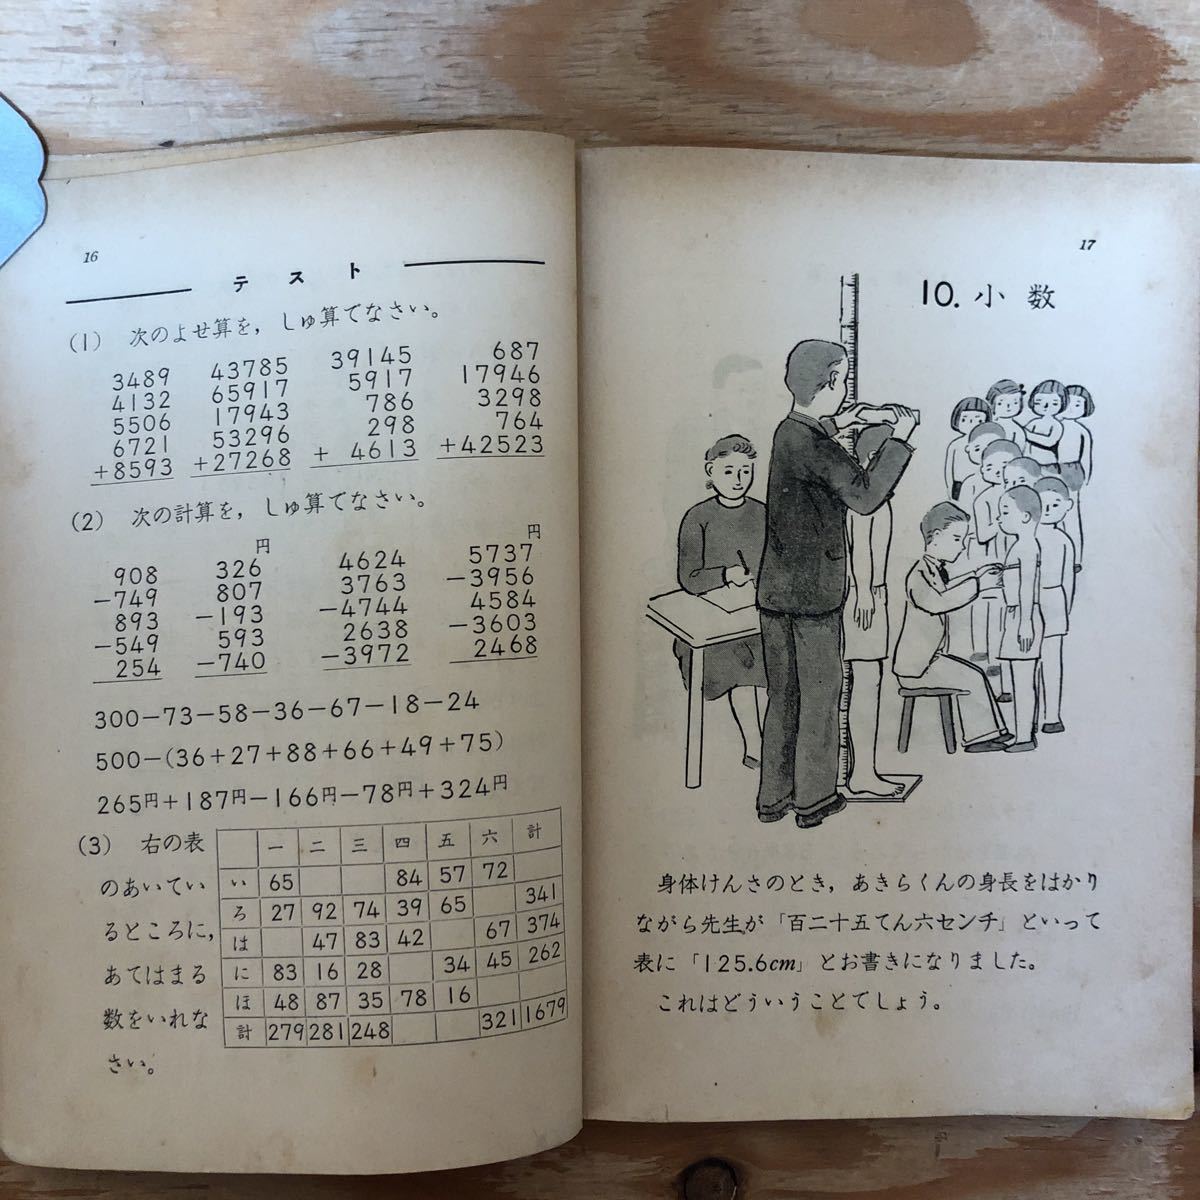 16
テスト
(1) 次のよせ算を，しゅ算でなさい。
3489 43785 39145 687
4132 65917 5917 17946
5506 17943 786 3298
6721 53296 298 764
+8593 +27268 + 4613 +42523
(2) 次の計算を，しゅ算でなさい。
円 円
908 326 4624 5737
-749 807 3763 -3956
893 -193 -4744 4584
-549 593 2638 -3603
254 -740 -3972 2468
300-73-58-36-67-18-24
500-(36+27+88+66+49+75)
265円+187円-166円-78円+324円
(3) 右の表
のあいてい
るところに，
あてはまる
数をいれな
さい。
一 二 三 四 五 六 計
い 65 84 57 72
ろ 27 92 74 39 65 341
は 47 83 42 67 374
に 83 16 28 34 45 262
ほ 48 87 35 78 16
計 279 281 248 321 1679
17
10. 小数
身体けんさのとき，あきらくんの身長をはかり
ながら先生が「百二十五てん六センチ」といって
表に「125.6cm」とお書きになりました。
これはどういうことでしょう。